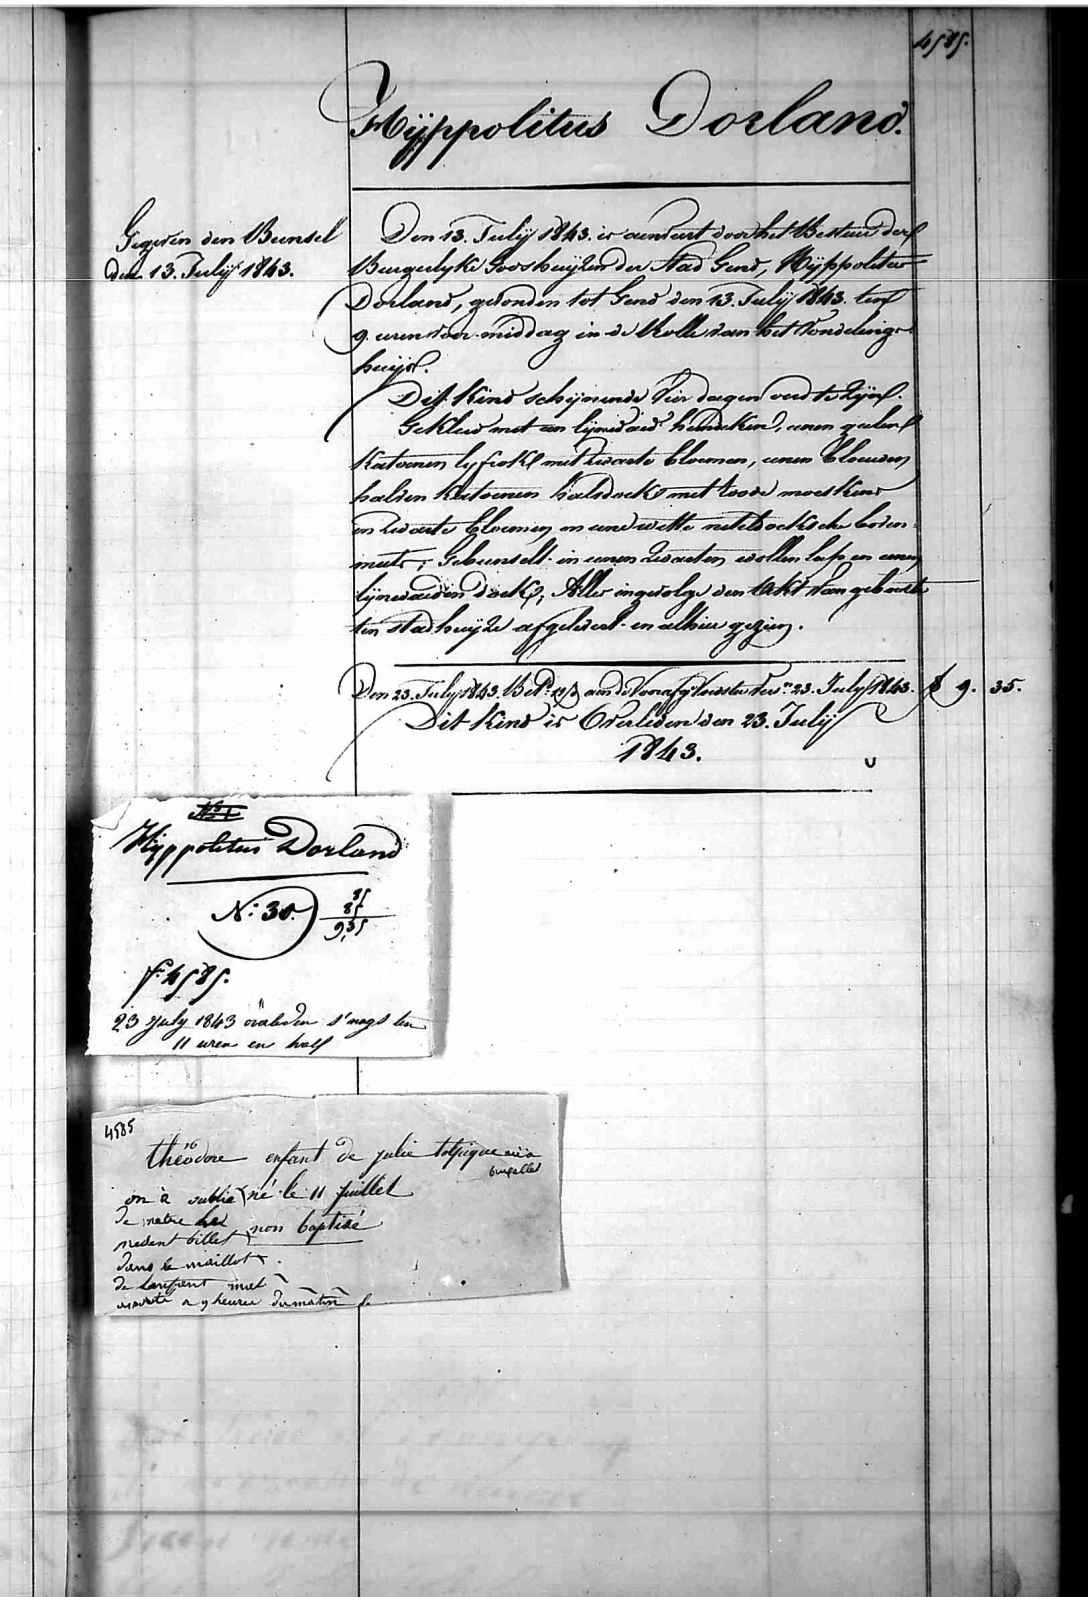 4585.
Hÿppolitus Dorland.
Gegeven den Bunsel
den 13. Julij 1843.
Den 13. Julij 1843. is aenveirt door het Bestuer der
Burgerlyke Godshuijzen der stad Gend, Hÿppolitus
Dorland, gevonden tot Gend den 13. Julij 1843. ten
9. uren voor-middag in de Rolle van het Vondelings-
huijs.
Dit Kind schijnende vier dagen oud te zijn.
Gekleed met een lijnwaed hemdeken, eenen geelen
Katoenen lyfrok met zwarte bloemen, eenen blauwen
halven Katoenen halsdoek met roode moeskens
en zwarte bloemen en eene witte neteldoeksche boven-
muts; Gebunselt in eenen zwarten wollen lap en eenen
lijnwaeden doek; Alles ingevolge den Akt van geboorte
ten stadhuijze afgelevert en alhier gezien.
Den 23. July 1843. Bet. aan de Voorafg. Voedster 23. July 1843. 9. 35.
Dit Kind is Overleden den 23. Julij
1843.
Hyppolitus Dorland
N: 30.
85
85
9,35
f. 4585.
23 july 1843 overleden s'nags ten
11 uren en half
4585
théodore enfant de julie
bruxelles
on à oublié né le 11 juillet
de metre le
present billet non baptisé
dans le maillot
de lenfant
a 9 heures du matin